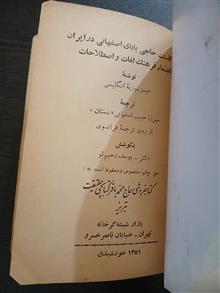 گذشت حاجی بابای اصفهانی در ایران
انضمام فرهنگ لغات و اصطلاحات
نوشتهٔ
جیمز موریهٔ انگلیسی
ترجمهٔ
میرزا حبیب اصفهانی «دستان»
از روی ترجمهٔ فرانسوی
بکوشش
دکتر - یوسف رحیم لو
حق چاپ مخصوص و محفوظ است به :
کتابفروشی حاج محمد باقر کتابچی حقیقت
تبریز
بازار شیشه گرخانه
تهران - خیابان ناصر خسرو
۱۳۵۱ خورشیدی